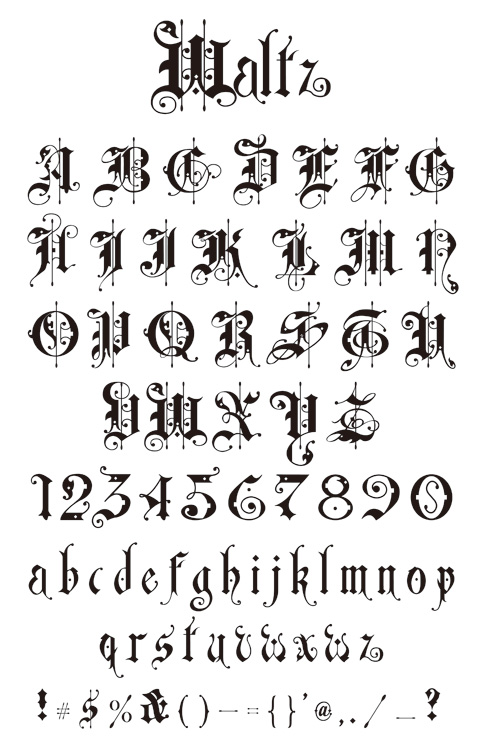 Waltz
A B C D E F G
H I J K L M N
O P Q R S T U
V W X Y Z
1 2 3 4 5 6 7 8 9 0
a b c d e f g h i j k l m n o p
q r s t u v w x y z
! # $ % & ( ) – = { } ' @ , . / _ ?